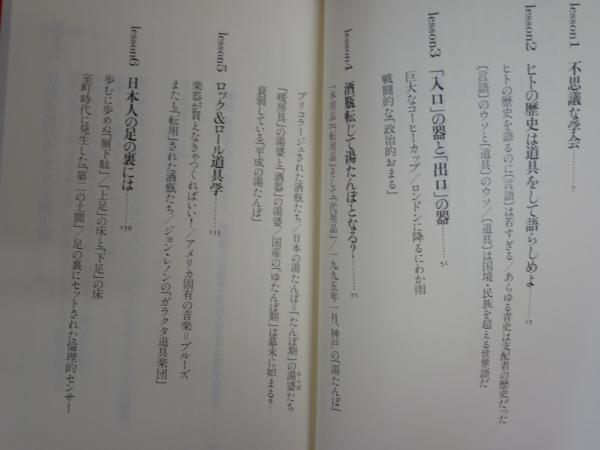 lesson1 不思議な学会………7
lesson2 ヒトの歴史は道具をして語らしめよ………15
ヒトの歴史を語るのに〔言語〕は若すぎる／あらゆる青史は支配者の歴史だった
〔言語〕のウソと〔道具〕のウソ／〔道具〕は国境・民族を超える世界語だ
lesson3 「入口」の器と「出口」の器………51
巨大なコーヒーカップ／ロンドンに降るにわか雨
戦闘的な「政治的おまる」
lesson4 酒瓶転じて湯たんぽとなる？………71
「本用品」「転用品」そして「代用品」／一九九五年一月、神戸の「湯たんぽ」
ブリコラージュされた酒瓶たち／日本の湯たんぽ＝「たんぽ期」の湯婆たち
「暖房具」の湯婆と「酒器」の湯婆／国産の「ゆたんぽ期」は幕末に始まる？
衰弱している「平成の湯たんぽ」
lesson5 ロック＆ロール道具学………133
楽器が買えなきゃつくればいい！／アメリカ固有の音楽＝ブルーズ
またも「転用」された酒瓶たち／ジョン・レノンの「ガラクタ道具楽団」
lesson6 日本人の足の裏には………159
歩むに歩めぬ「厠下駄」／「上足」の床と「下足」の床
室町時代に発生した「第二の土間」／足の裏にセットされた倫理的センサー